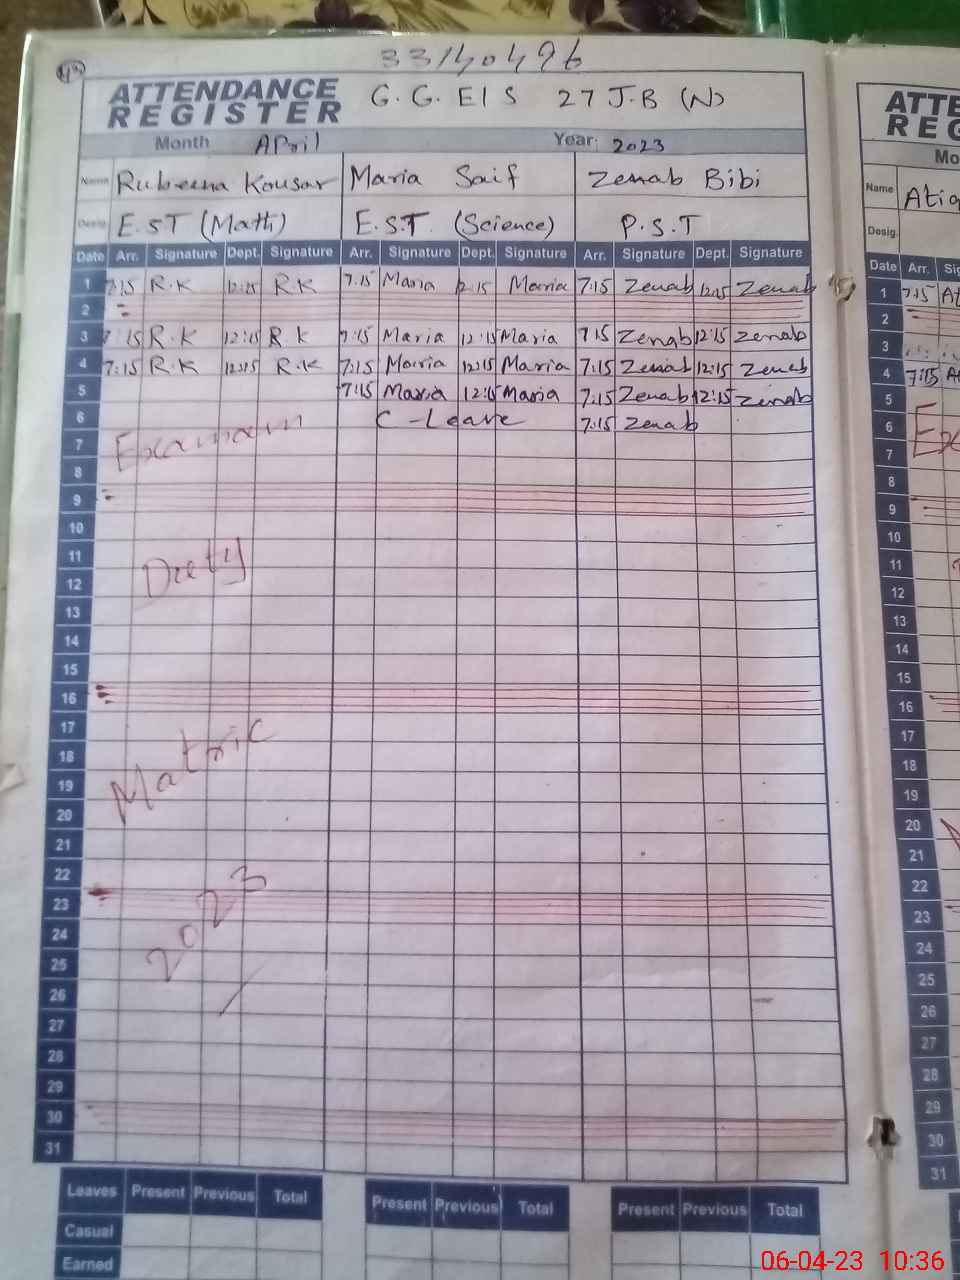 43
33140496
ATTENDANCE REGISTER G.G.E/S 27 J.B (N)
Month April Year: 2023
Name Rubeena Kousar Maria Saif Zenab Bibi
Desig E.ST (Math) E.S.T. (Science) P.S.T
Date Arr. Signature Dept. Signature Arr. Signature Dept. Signature Arr. Signature Dept. Signature
1 7:15 R.K 12:15 R.K 7:15 Maria 12:15 Maria 7:15 Zenab 12:15 Zenab
2
3 7:15 R.K 12:15 R.K 7:15 Maria 12:15 Maria 7:15 Zenab 12:15 Zenab
4 7:15 R.K 12:15 R.K 7:15 Maria 12:15 Maria 7:15 Zenab 12:15 Zenab
5 7:15 Maria 12:15 Maria 7:15 Zenab 12:15 Zenab
6 C-Leave 7:15 Zenab
7
8
9
10
11
Duty
12
13
14
15
16
17
18
Matric
19
20
21
22
23
24
2023
25
26
27
28
29
30
31
Leaves Present Previous Total Present Previous Total Present Previous Total
Casual
Earned
ATTE
REG
Mo
Name Atiq
Desig.
Date Arr. Sig
1 7:15 At
2
3
4 7:15 At
5
6
7
8
9
10
11
12
13
14
15
16
17
18
19
20
21
22
23
24
25
26
27
28
29
30
31
06-04-23 10:36